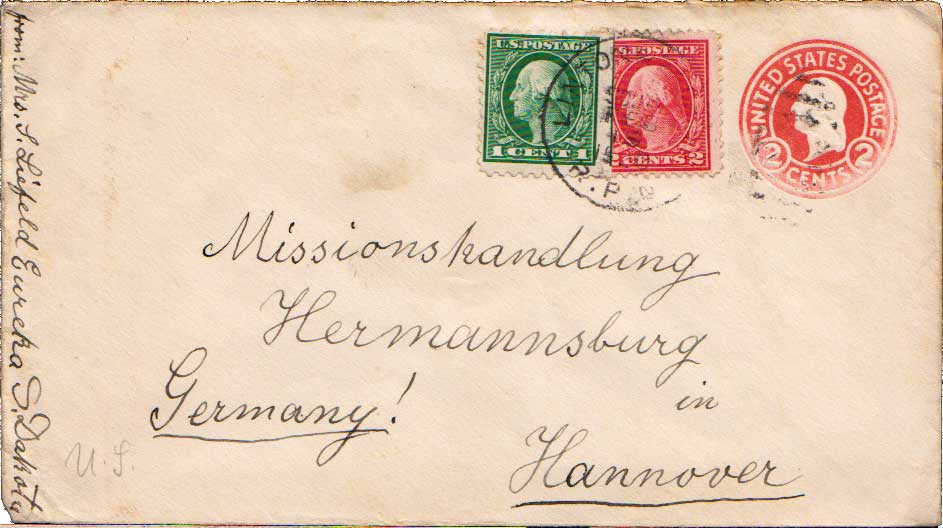 from: Mrs. S. Liefeld Eureka S. Dakota
U.S. POSTAGE
1 CENT 1
S. POSTAGE
CENTS 2
R.P.
UNITED STATES POSTAGE
2 CENTS 2
Missionshandlung
Hermannsburg
in
Germany!
Hannover
U.S.